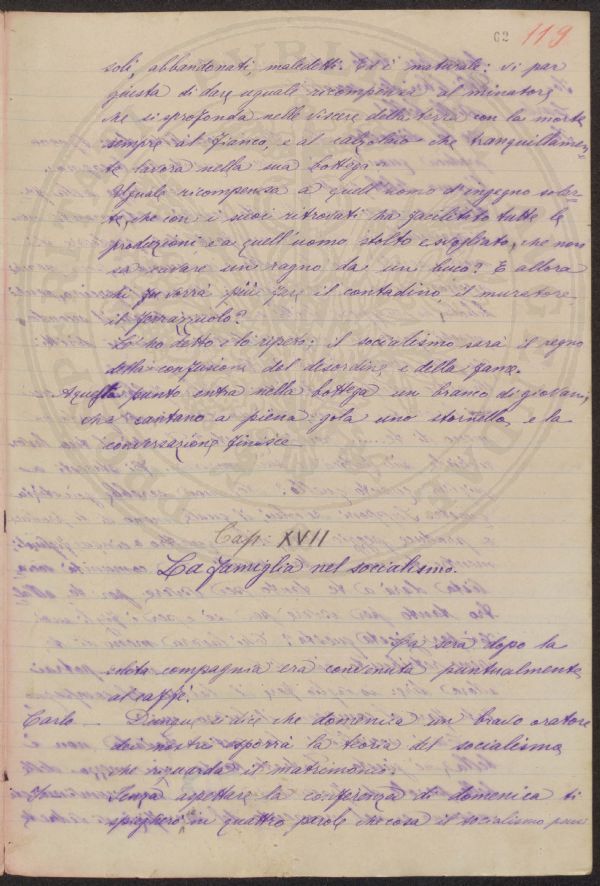 62 119
soli, abbandonati, maledetti. Ed è naturale: vi par
giusta di dare uguale ricompensa al minatore,
che si sprofonda nelle viscere della terra con la morte
sempre al fianco, e al calzolaio che tranquillamen-
te lavora nella sua bottega?
Uguale ricompensa a quell'uomo d'ingegno soler-
te, che con i suoi ritrovati ha facilitato tutte le
produzioni e a quell'uomo stolto e svogliato, che non
sa cavare un ragno da un buco? E allora
chi vorrà più fare il contadino il muratore
il ferrazzuolo?
Lo ho detto e lo ripeto: il socialismo sarà il regno
della confusione del disordine e della fame.
A questo punto entra nella bottega un branco di giovani,
che cantano a piena gola uno stornello, e la
conversazione finisce
Cap: XVII
La famiglia nel socialismo.
La sera dopo la
solita compagnia era convenuta puntualmente
al caffè.
Carlo — Dunque si dice che domenica un bravo oratore
dei nostri esporrà la teoria del socialismo
che riguarda il matrimonio.
Senza aspettare la conferenza di domenica ti
spiegherò in quattro parole che cosa il socialismo